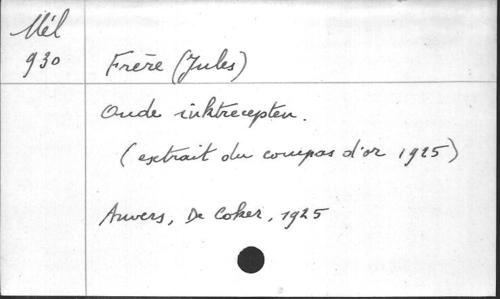 Mél
930
Frère (Jules)
Oude inktrecepten.
(extrait du compas d'or 1925)
Anvers, De Coker, 1925